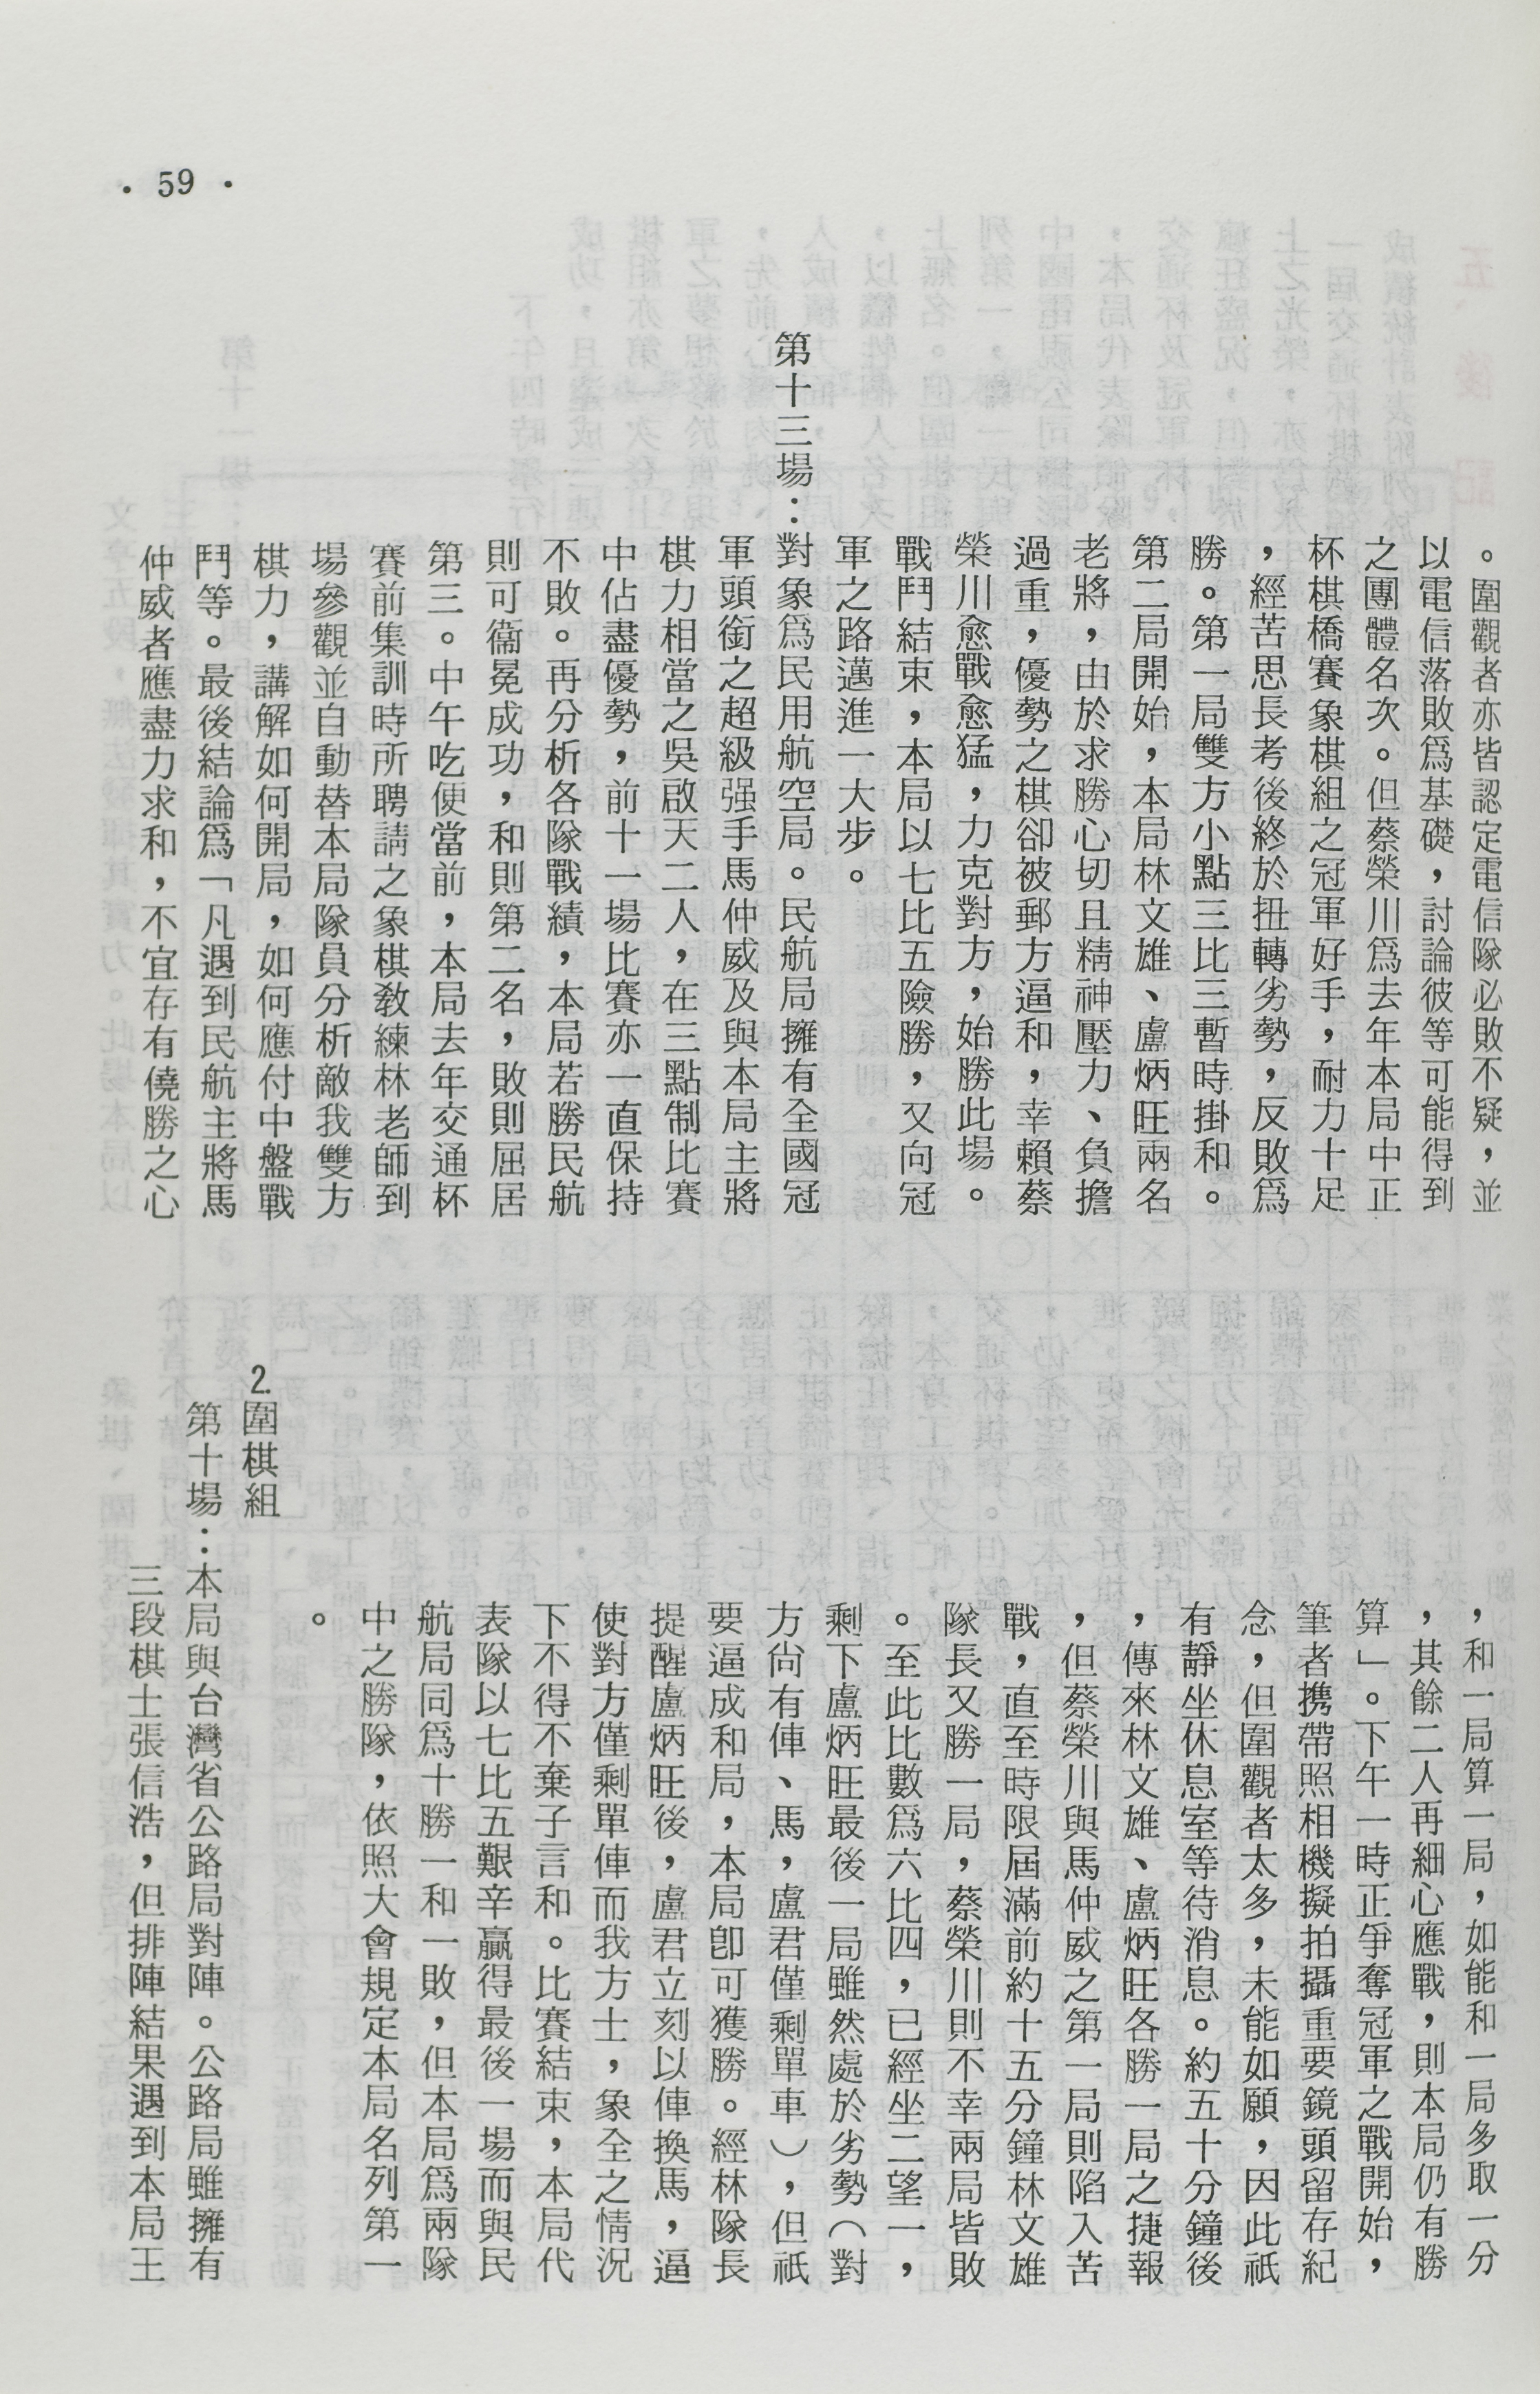 。圍觀者亦皆認定電信隊必敗不疑，並
以電信落敗爲基礎，討論彼等可能得到
之團體名次。但蔡榮川爲去年本局中正
杯棋橋賽象棋組之冠軍好手，耐力十足
，經苦思長考後終於扭轉劣勢，反敗爲
勝。第一局雙方小點三比三暫時掛和。
第二局開始，本局林文雄、盧炳旺兩名
老將，由於求勝心切且精神壓力、負擔
過重，優勢之棋卻被郵方逼和，幸賴蔡
榮川愈戰愈猛，力克對方，始勝此場。
戰鬥結束，本局以七比五險勝，又向冠
軍之路邁進一大步。
第十三場：對象爲民用航空局。民航局擁有全國冠
軍頭銜之超級强手馬仲威及與本局主將
棋力相當之吳啟天二人，在三點制比賽
中佔盡優勢，前十一場比賽亦一直保持
不敗。再分析各隊戰績，本局若勝民航
則可衞冕成功，和則第二名，敗則屈居
第三。中午吃便當前，本局去年交通杯
賽前集訓時所聘請之象棋敎練林老師到
場參觀並自動替本局隊員分析敵我雙方
棋力，講解如何開局，如何應付中盤戰
鬥等。最後結論爲「凡遇到民航主將馬
仲威者應盡力求和，不宜存有僥勝之心
，和一局算一局，如能和一局多取一分
，其餘二人再細心應戰，則本局仍有勝
算」。下午一時正爭奪冠軍之戰開始，
筆者携帶照相機擬拍攝重要鏡頭留存紀
念，但圍觀者太多，未能如願，因此祇
有靜坐休息室等待消息。約五十分鐘後
，傳來林文雄、盧炳旺各勝一局之捷報
，但蔡榮川與馬仲威之第一局則陷入苦
戰，直至時限屆滿前約十五分鐘林文雄
隊長又勝一局，蔡榮川則不幸兩局皆敗
。至此比數爲六比四，已經坐二望一，
剩下盧炳旺最後一局雖然處於劣勢（對
方尙有俥、馬，盧君僅剩單車），但祇
要逼成和局，本局卽可獲勝。經林隊長
提醒盧炳旺後，盧君立刻以俥換馬，逼
使對方僅剩單俥而我方士，象全之情況
下不得不棄子言和。比賽結束，本局代
表隊以七比五艱辛贏得最後一場而與民
航局同爲十勝一和一敗，但本局爲兩隊
中之勝隊，依照大會規定本局名列第一
。
2.圍棋組
第十場：本局與台灣省公路局對陣。公路局雖擁有
三段棋士張信浩，但排陣結果遇到本局王
• 59 •